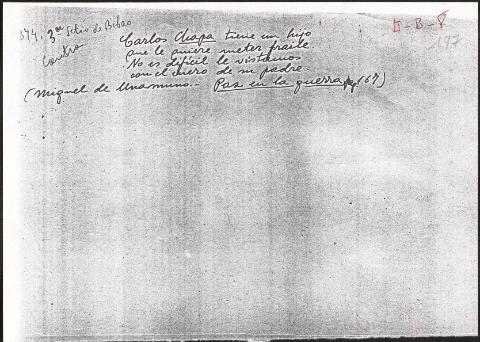 374. 3er Sitio de Bilbao
Contra
II - B - P
197
Carlos Chapa tiene un hijo
que le quiere meter fraile.
No es dificil le vistamos
con el cuero de su padre
(Miguel de Unamuno.- Paz en la guerra pg. 67)